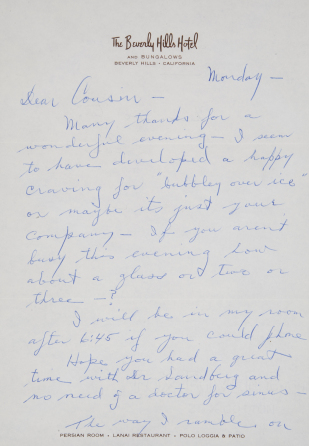 The Beverly Hills Hotel
AND BUNGALOWS
BEVERLY HILLS · CALIFORNIA
Monday —
Dear Cousin —
Many thanks for a
wonderful evening — I seem
to have developed a happy
craving for "bubbley over ice"
or maybe its just your
company — If you aren't
busy this evening how
about a glass or two or
three — ?
I will be in my room
after 6:45 if you could phone
Hope you had a great
time with Mr Sandburg and
no need of a doctor for sinus —
The way I ramble on
PERSIAN ROOM · LANAI RESTAURANT · POLO LOGGIA & PATIO